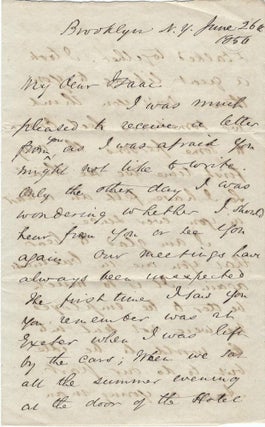 Brooklyn N.Y. June 26th
1856
My dear Isaac.
I was much
pleased to receive a letter
from you as I was afraid you
might not like to write.
Only the other day I was
wondering whether I should
hear from you or see you
again. Our meetings have
always been unexpected
The first time I saw you
you remember was at
Exeter when I was left
by the cars; When we sat
all the summer evening
at the door of the Hotel